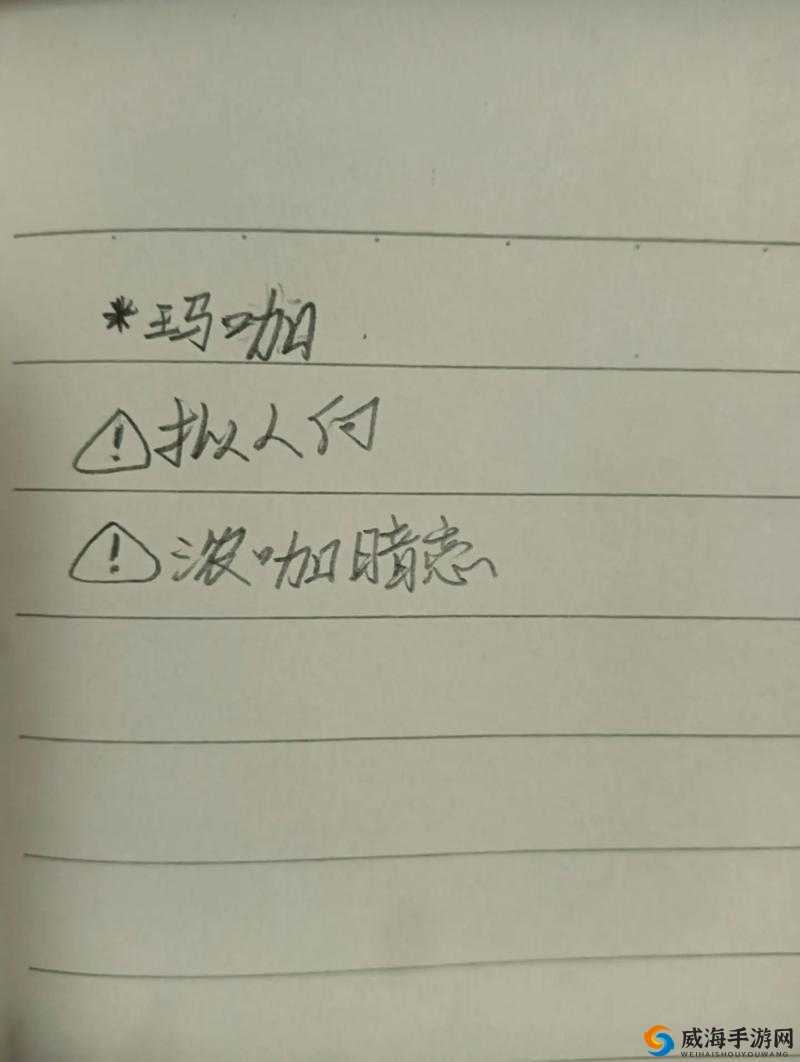 *玛咖
⚠拟人付
⚠浓咖暗恋
威海手游网
WEIHAISHOUYOUWANG